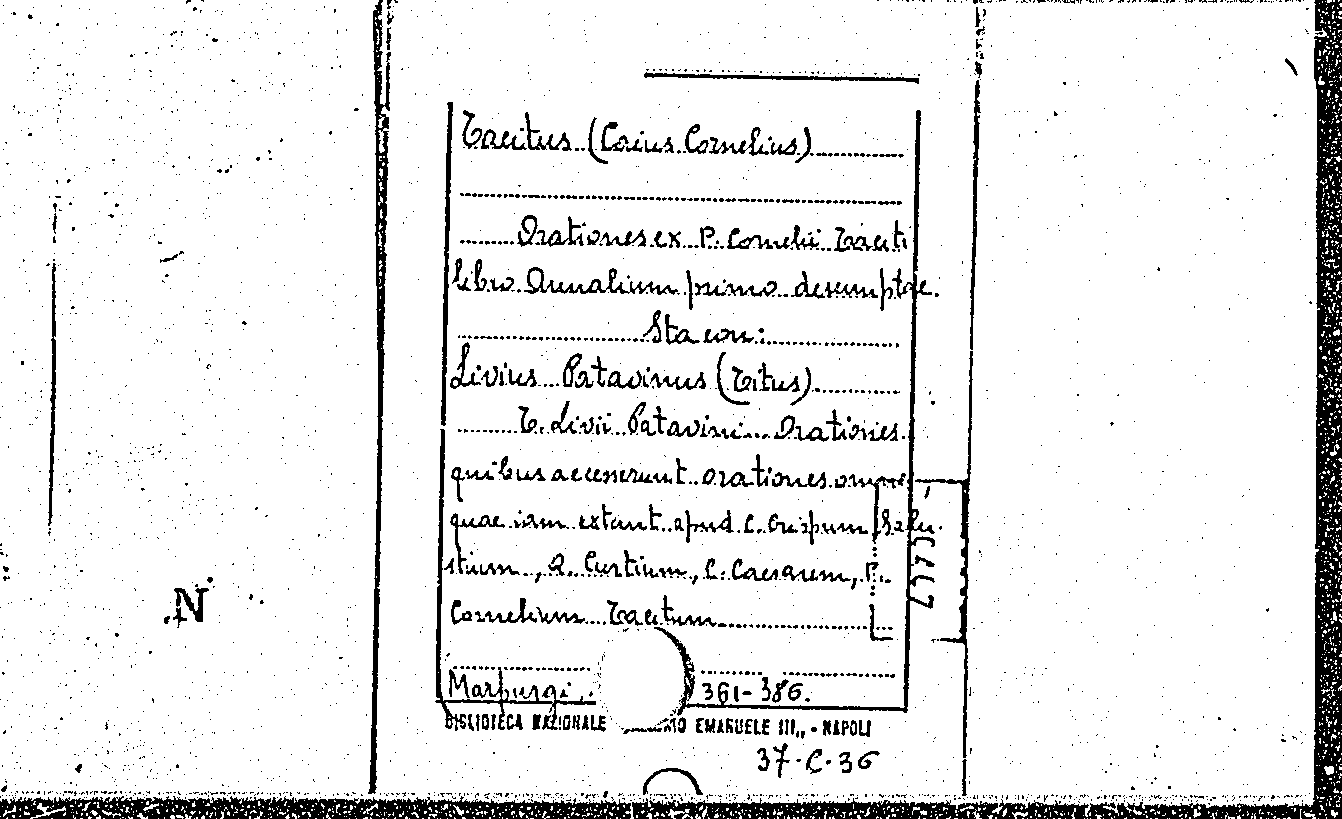 Tacitus (Caius Cornelius)
Orationes ex P. Cornelii Taciti
libro Annalium primo desumptae.
Sta con:
Livius Patavinus (Titus)
T. Livii Patavini Orationes
quibus accesserunt orationes omnes
quae iam extant apud C. Crispum Salu-
stium, Q. Curtium, C. Caesarem, P.
Cornelium Tacitum
Marpurgi. 361-386.
BIBLIOTECA NAZIONALE EMANUELE III,, - NAPOLI
37.C.36
N